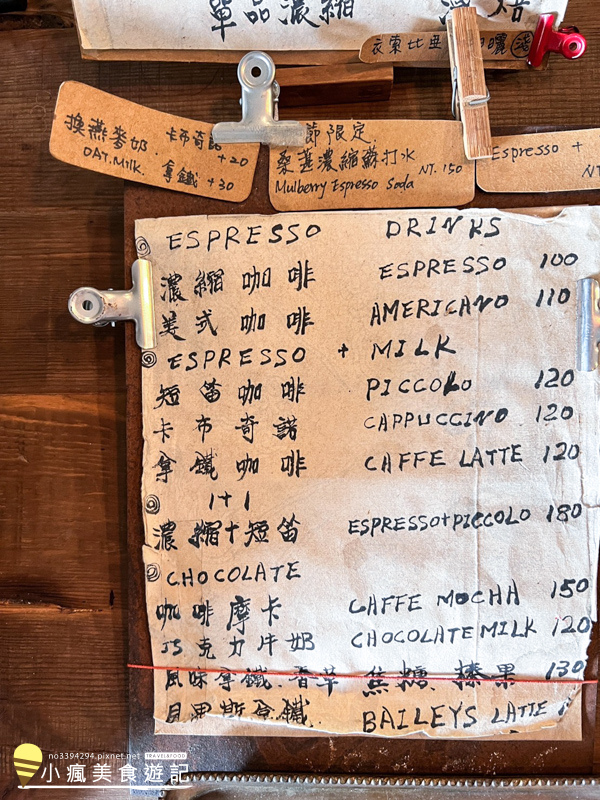 單品濃縮
換燕麥奶. 卡布奇諾 +20
OAT.Milk. 拿鐵 +30
節限定.
桑葚濃縮蘇打水
Mulberry Espresso Soda NT.150
Espresso +
ESPRESSO DRINKS
濃縮咖啡 ESPRESSO 100
美式咖啡 AMERICANO 110
ESPRESSO + MILK
短笛咖啡 PICCOLO 120
卡布奇諾 CAPPUCCINO 120
拿鐵咖啡 CAFFE LATTE 120
1+1
濃縮+短笛 ESPRESSO+PICCOLO 180
CHOCOLATE
咖啡摩卡 CAFFE MOCHA 150
巧克力牛奶 CHOCOLATE MILK 120
風味拿鐵.香草 焦糖.榛果 130
貝里斯拿鐵 BAILEYS LATTE
no3394294.pixnet.net TRAVEL&FOOD
小瘋美食遊記